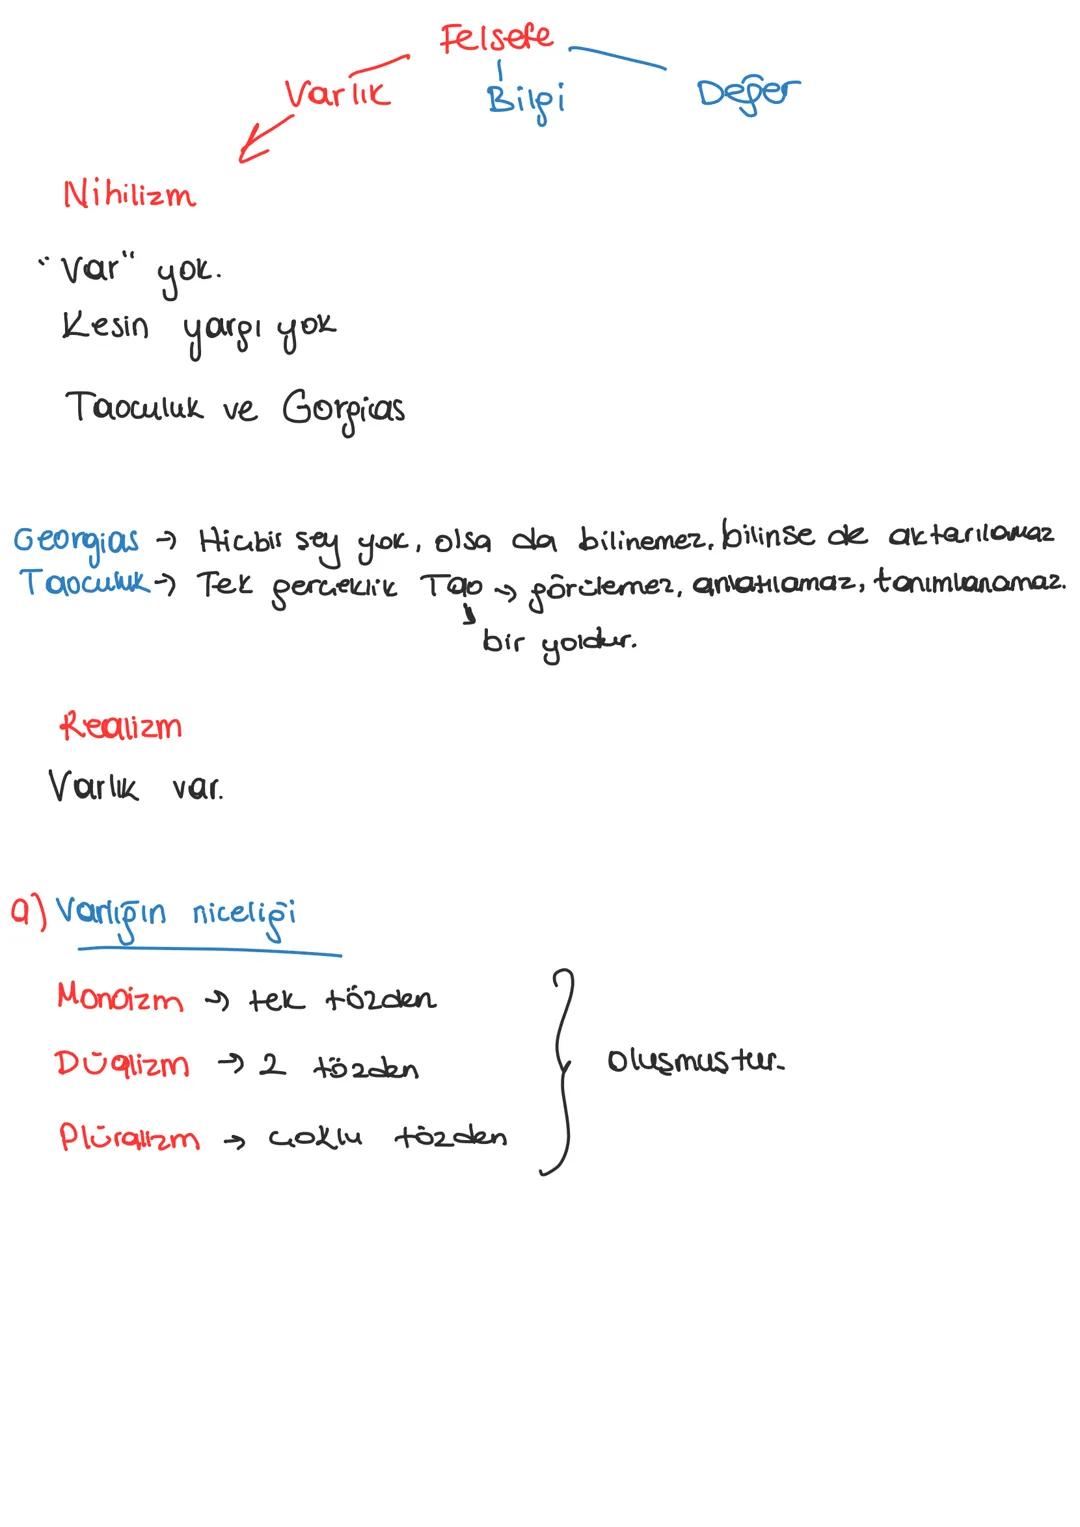 Felsefe
Varlık Bilgi Değer
Nihilizm
"Var" yok.
Kesin yargı yok
Taoculuk ve Gorgias
Georgias → Hiçbir sey yok, olsa da bilinemez, bilinse de aktarılamaz
Taoculuk → Tek gerçeklik Tao → görülemez, anlatılamaz, tanımlanamaz.
bir yoldur.
Realizm
Varlık var.
a) Varlığın niceliği
Monoizm → tek tözden
Düalizm → 2 tözden
oluşmustur.
Plüralizm → çoklu tözden